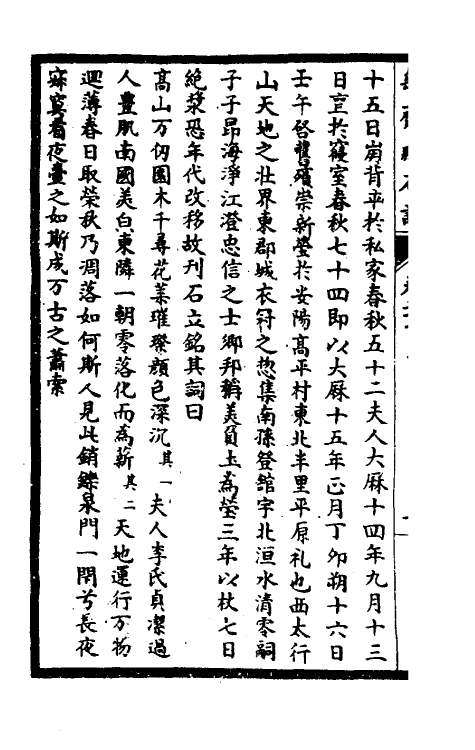 十五日崩背卒於私家春秋五十二夫人大厤十四年九月十三
日窆於寢室春秋七十四即以大厤十五年正月丁卯朔十六日
壬午啓舊殯崇新塋於安陽髙平村東北半里平原礼也西太行
山天地之壮界東郡城衣冠之惣集南孫登舘宇北洹水清零嗣
子子昂海淨江澄忠信之士鄉邦稱美負土為塋三年以杖七日
絶漿恐年代改移故刋石立銘其詞曰
髙山万仞園木千尋花葉璀璨顔色深沉其一夫人李氏貞潔過
人豊肌南國美白東隣一朝零落化而為薪其二天地運行万物
迴薄春日取榮秋乃凋落如何斯人見此銷鑠泉門一閇兮長夜
寐寞看夜臺之如斯成万古之蕭索